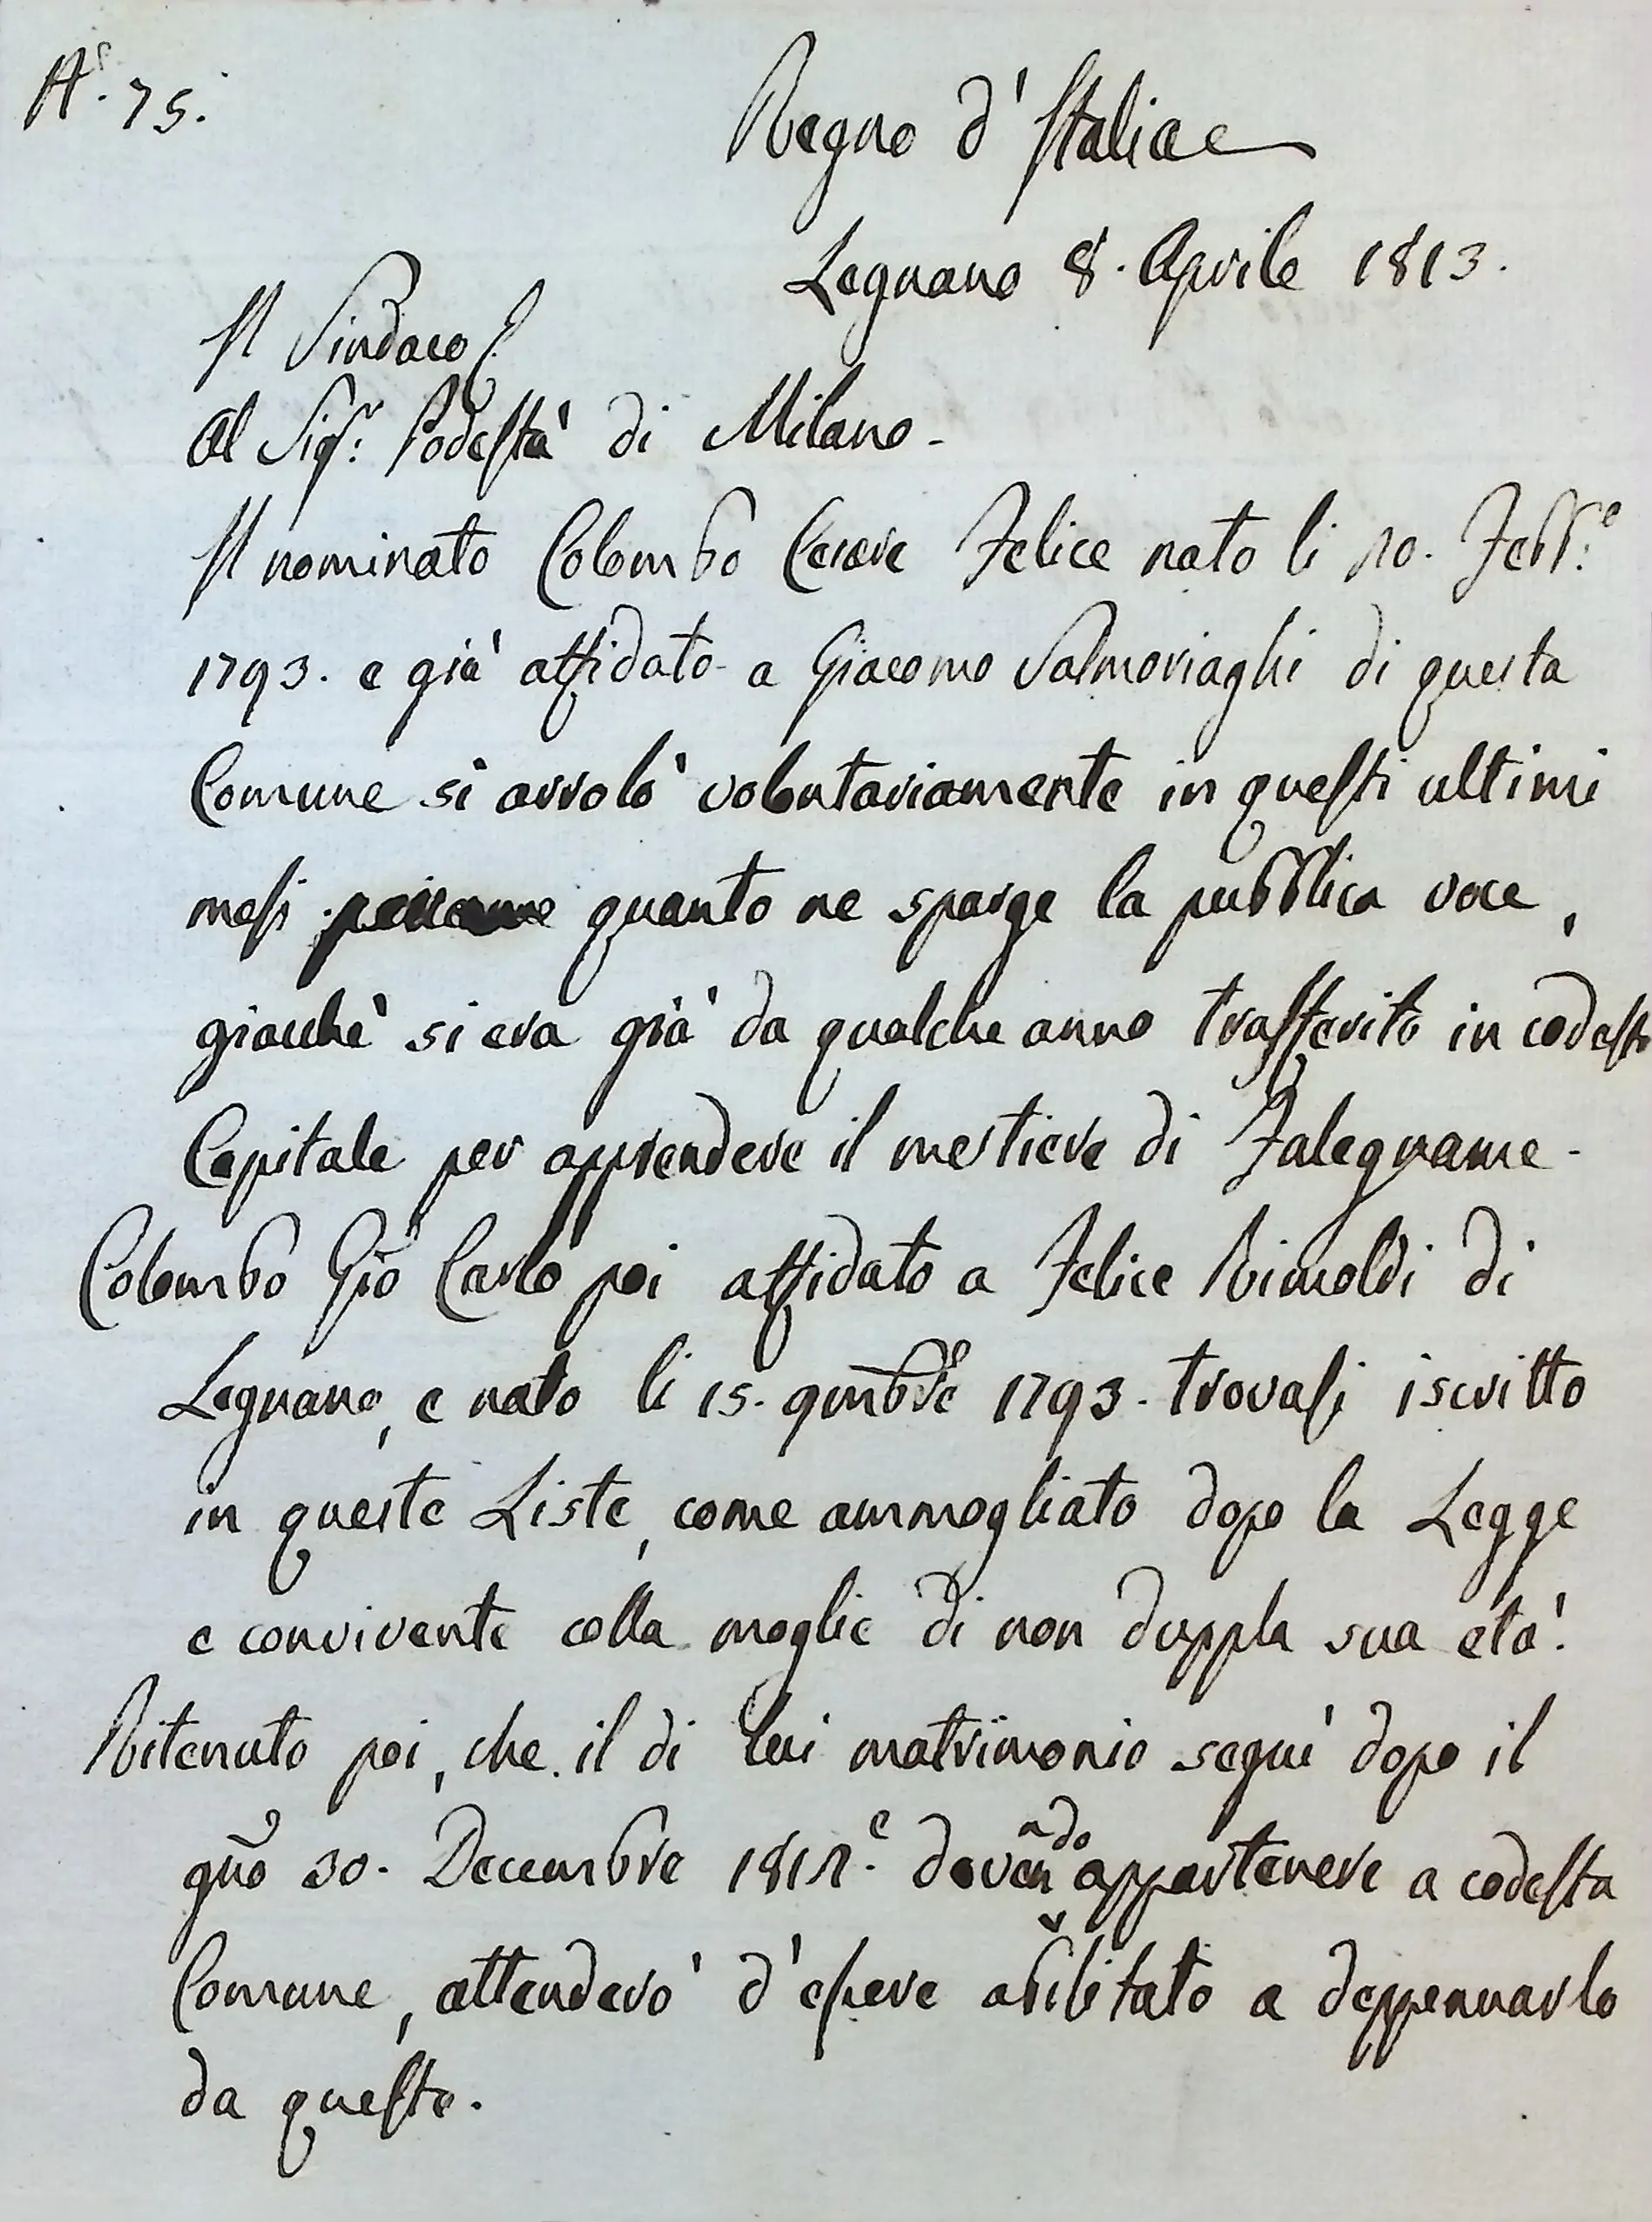 N.° 75.
Regno d'Italia
Legnano 8. Aprile 1813.
Il Sindaco
Al Sig.r Podestà di Milano -
Il nominato Colombo Cesare Felice nato li 20. Febb.o
1793. e già affidato a Giacomo Salmoriaghi di questa
Comune si arrolò volontariamente in questi ultimi
mesi quanto ne sparge la pubblica voce,
giacchè si era già da qualche anno trasferito in codesta
Capitale per apprendere il mestiere di Falegname -
Colombo Gio Carlo poi affidato a Felice Rimoldi di
Legnano, e nato li 15. 9mbre 1793. trovasi iscritto
in queste Liste, come ammogliato dopo la Legge
e convivente colla moglie di non duppla sua età.
Ritenuto poi, che il di lui matrimonio seguì dopo il
gno 30. Decembre 1812.e dovendo appartenere a codesta
Comune, attenderò d'essere abilitato a deppennarlo
da queste.